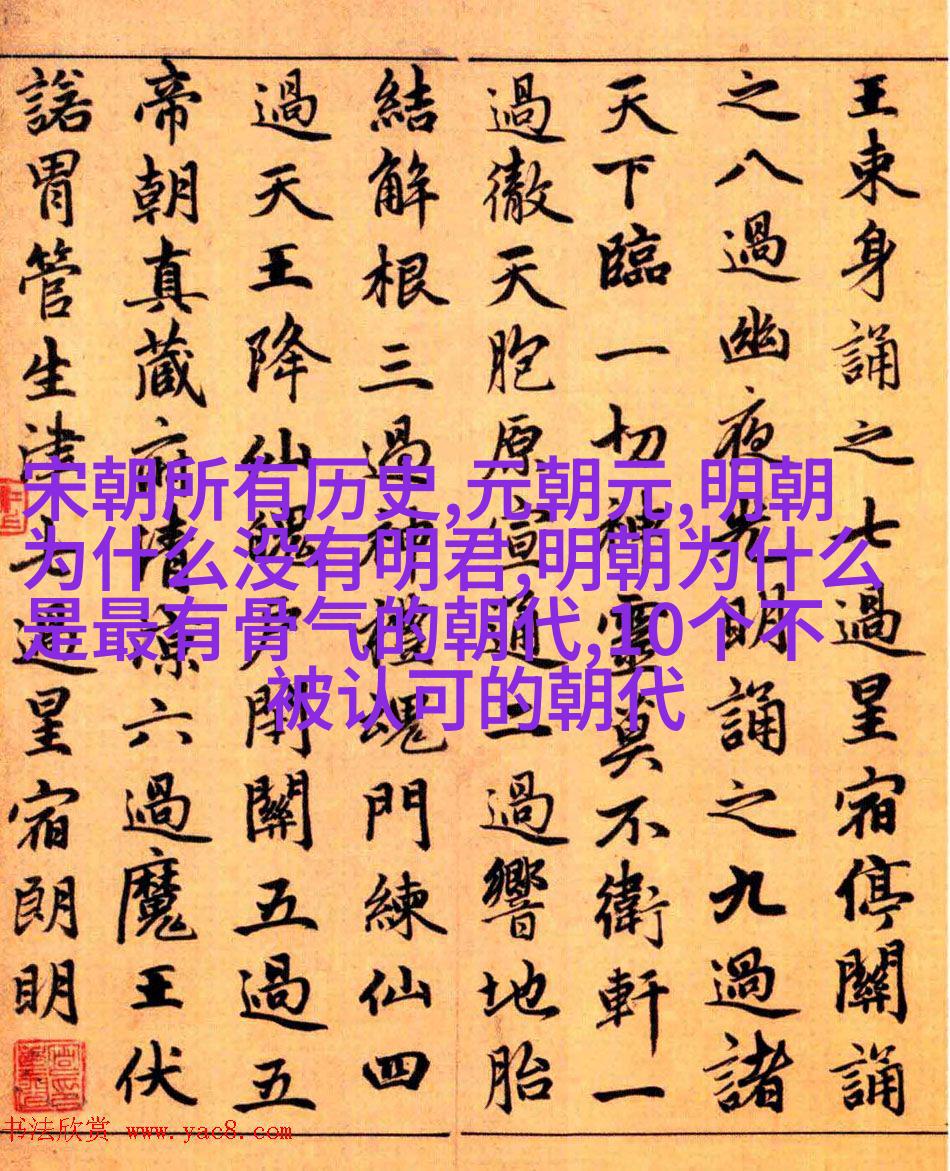 王東身誦之七過星宿停關誦
之八過幽夜光明誦之九過諸
天下臨一切神靈莫不衛軒一
過徹天胞原宣通二過響地胎
結解根三過神禮魂門練仙四
過天王降仙尸閉關五過五
帝朝真藏府清涼六過魔王伏
諾胃管生津星宿朗明
宋朝所有历史,元朝元,明朝
为什么没有明君,明朝为什么
是最有骨气的朝代,10个不
被认可的朝代
书法欣赏 www.yac8.com